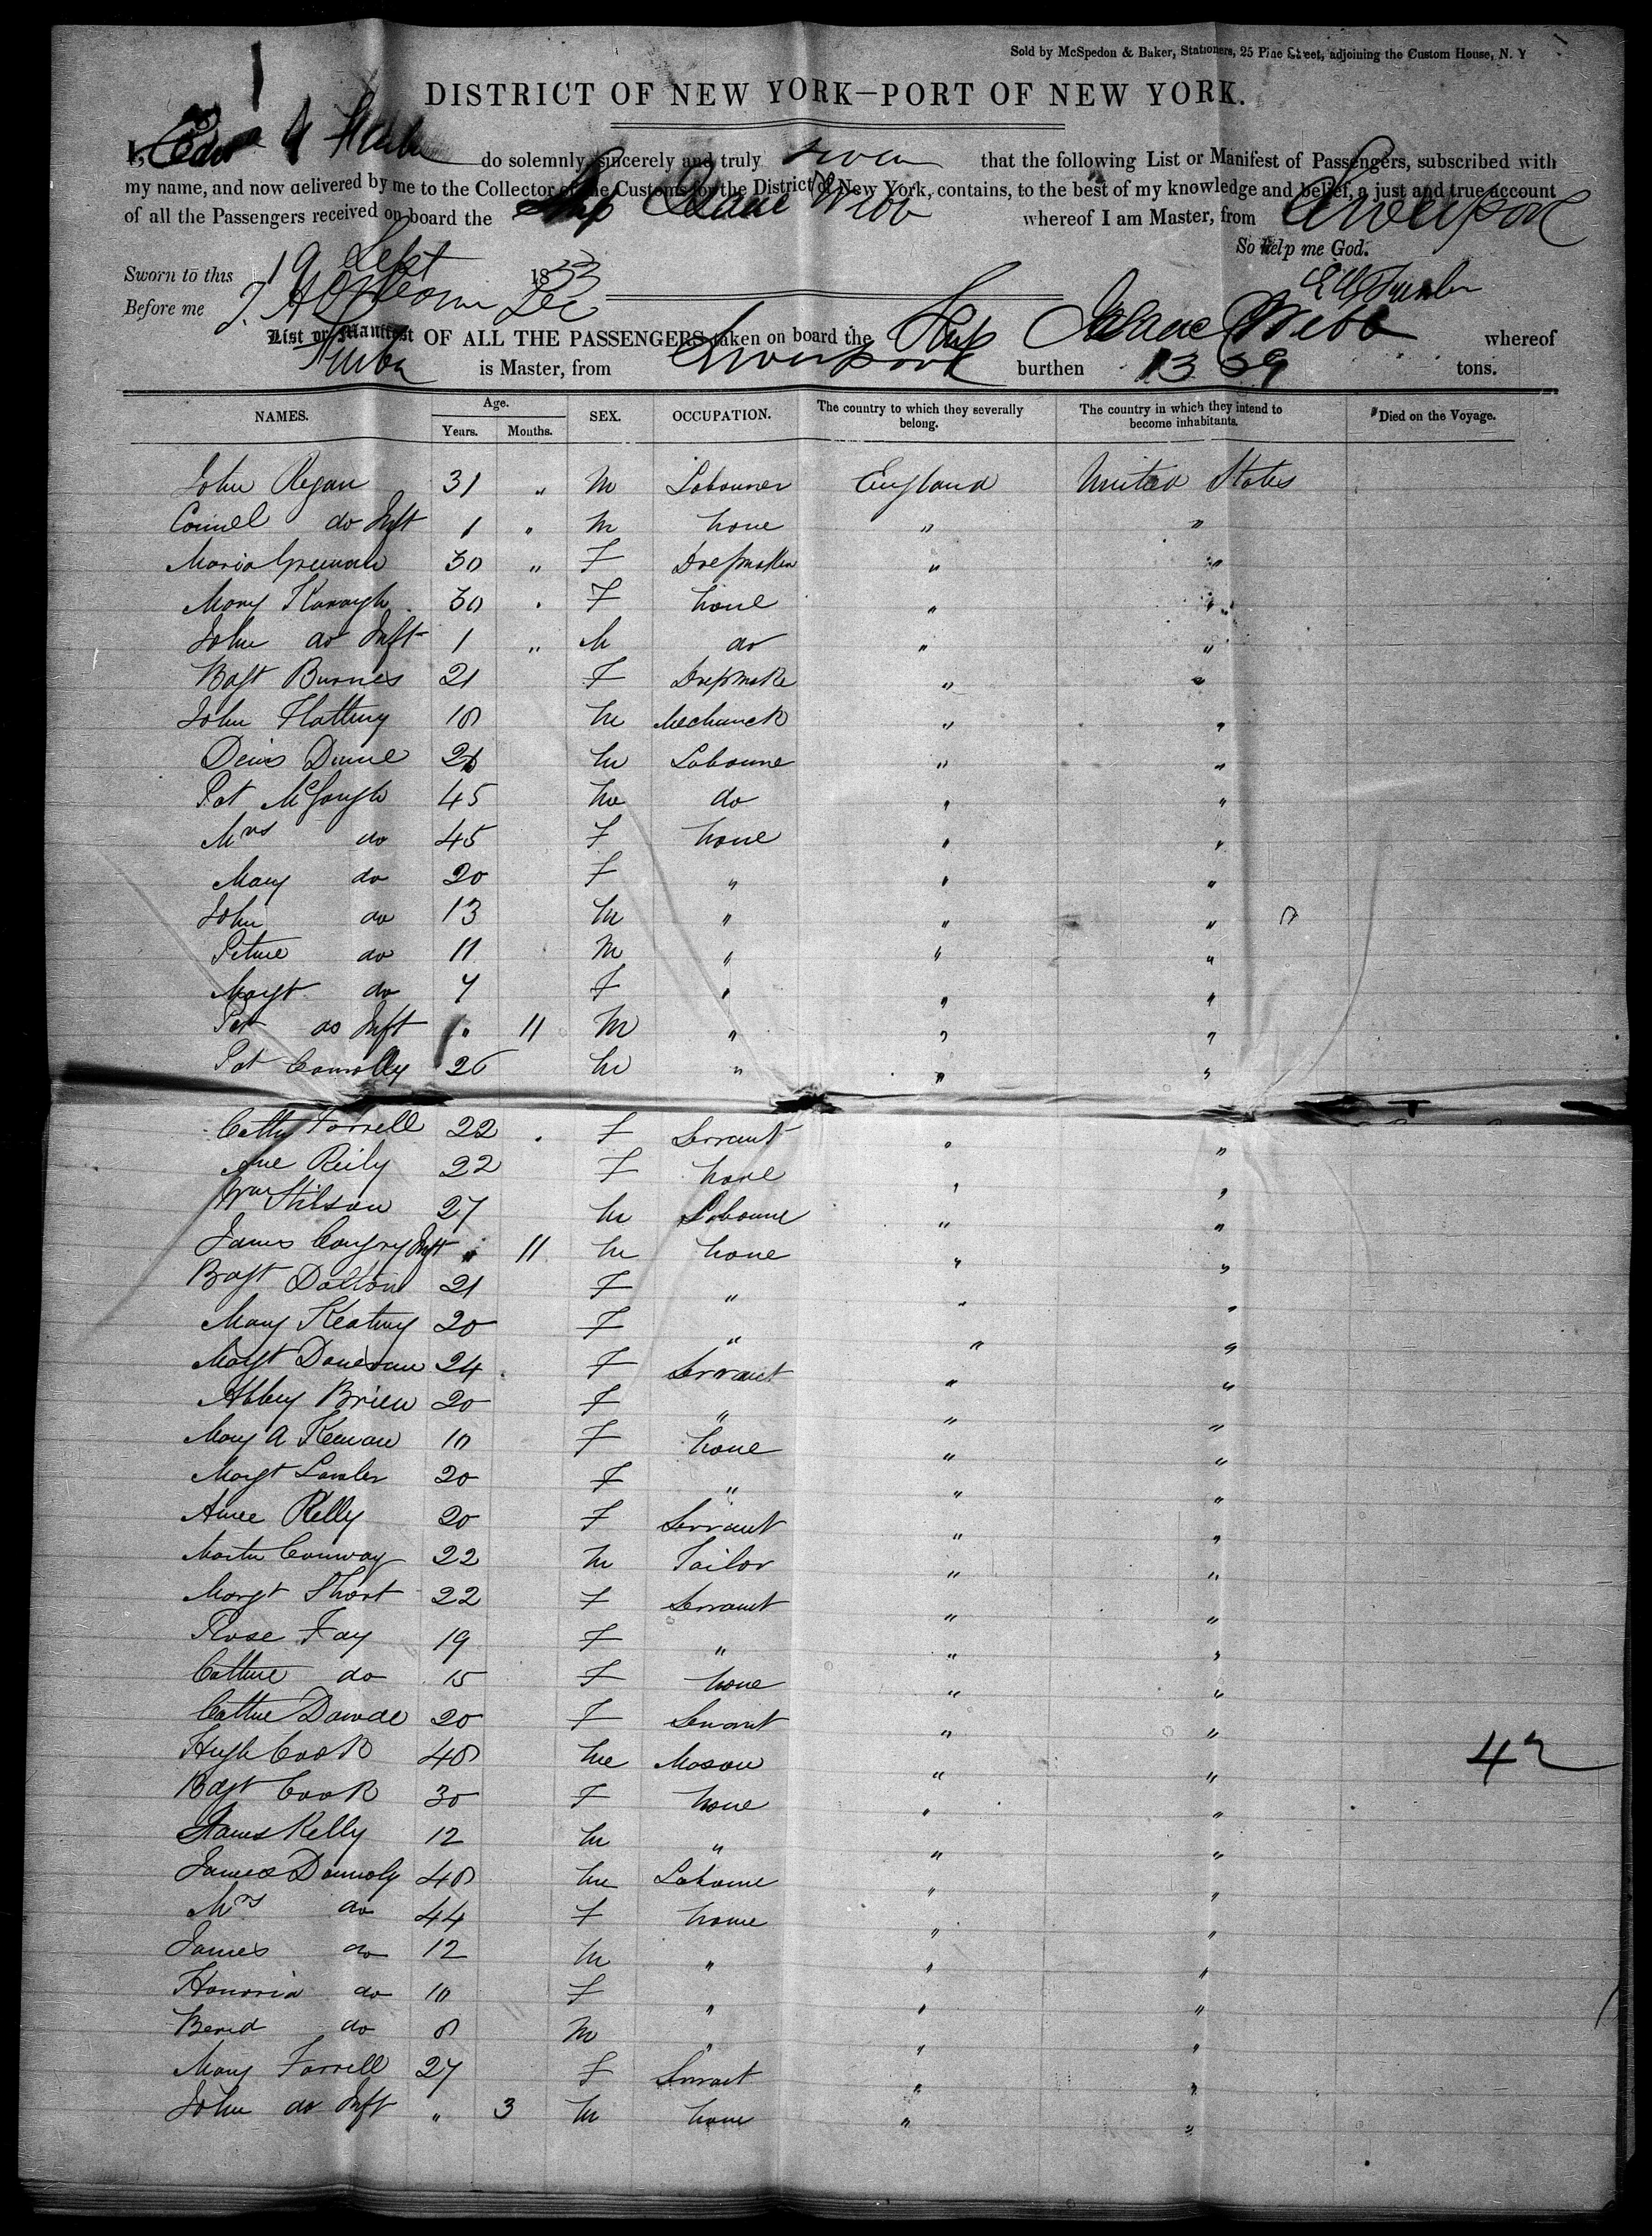 Sold by McSpedon & Baker, Stationers, 25 Pine Street, adjoining the Custom House, N. Y
1
DISTRICT OF NEW YORK—PORT OF NEW YORK.
I, do solemnly, sincerely and truly swear that the following List or Manifest of Passengers, subscribed with
my name, and now delivered by me to the Collector of the Customs for the District of New York, contains, to the best of my knowledge and belief, a just and true account
of all the Passengers received on board the Ship Isaac Webb whereof I am Master, from Liverpool
So help me God.
Sworn to this 19 Sept 1853
Before me
List or Manifest OF ALL THE PASSENGERS taken on board the Ship Isaac Webb whereof
is Master, from Liverpool burthen 1359 tons.
NAMES. Age. SEX. OCCUPATION. The country to which they severally belong. The country in which they intend to become inhabitants. Died on the Voyage.
Years. Months.
John Regan 31 " M Labourer England United States
do Inft 1 " M none " "
Maria 30 " F Dressmaker " "
Mary Kavaygh 30 " F none " "
John do Inft 1 " M do " "
Bgt Burnes 21 F Dressmake " "
John Flattery 18 M Mechanick " "
Denis Dunne 26 M Laboure " "
Pat McGough 45 M do " "
Mrs do 45 F none " "
Mary do 20 F " " "
John do 13 M " " "
do 11 M " " "
Margt do 7 F " " "
Pat do Inft " 11 M " " "
Pat Connolly 26 M " " "
Cath Farrell 22 F Servant " "
Ane Reily 22 F none " "
Wm Stilson 27 M Laboure " "
James Inft " 11 M none " "
Bgt Dalton 21 F " " "
Mary Keating 20 F " " "
Margt Donevan 24 F Servant " "
Abbey Brien 20 F " " "
Mary A Keenan 10 F none " "
Margt Lawler 20 F " " "
Anne Kelly 20 F Servant " "
Martin Conway 22 M Tailor " "
Margt Short 22 F Servant " "
Rose Fay 19 F " " "
Cathne do 15 F none " "
Cathne Dowde 20 F Servant " "
Hugh Cook 48 M Mason " "
42
Bgt Cook 30 F none " "
James Kelly 12 M " " "
James Donnoly 48 M Laboure " "
Mrs do 44 F none " "
James do 12 M " " "
Honoria do 10 F " " "
Bernd do 8 M " " "
Mary Farrell 27 F Servant " "
John do Inft " 3 M none " "